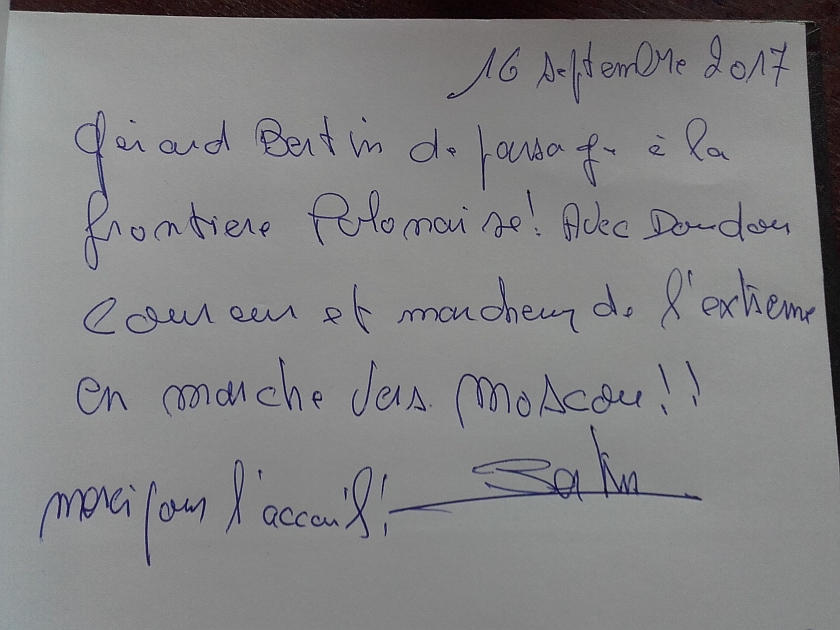 16 septembre 2017
Gérard Bertin de passage à la
frontiere Polonaise! Avec Doudou
coureur et marcheur de l'extreme
en marche vers Moscou!!
merci pour l'accueil! Bertin